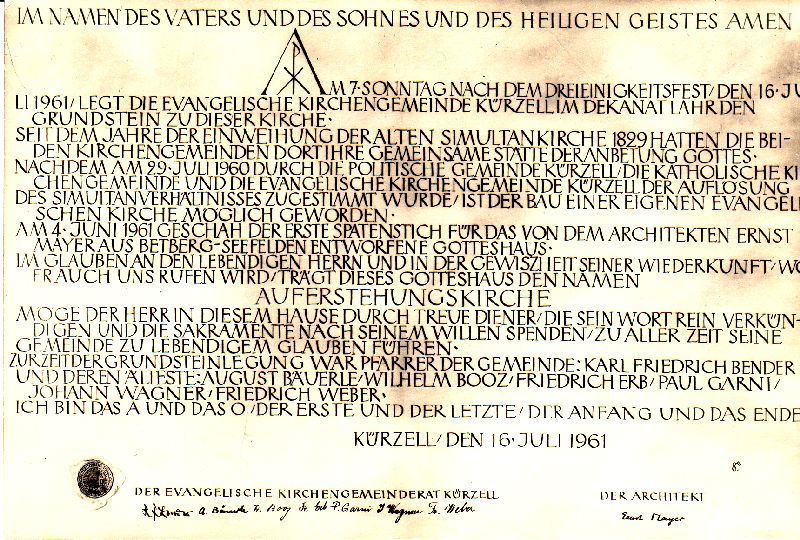 IM NAMEN DES VATERS UND DES SOHNES UND DES HEILIGEN GEISTES AMEN
AM 7·SONNTAG NACH DEM DREIEINIGKEITSFEST/ DEN 16·JU
LI 1961/ LEGT DIE EVANGELISCHE KIRCHENGEMEINDE KÜRZELL IM DEKANAT LAHR DEN
GRUNDSTEIN ZU DIESER KIRCHE·
SEIT DEM JAHRE DER EINWEIHUNG DER ALTEN SIMULTANKIRCHE 1829 HATTEN DIE BEI-
DEN KIRCHENGEMEINDEN DORT IHRE GEMEINSAME STÄTTE DER ANBETUNG GOTTES·
NACHDEM AM 29·JULI 1960 DURCH DIE POLITISCHE GEMEINDE KÜRZELL/ DIE KATHOLISCHE KI
CHENGEMEINDE UND DIE EVANGELISCHE KIRCHENGEMEINDE KÜRZELL DER AUFLÖSUNG
DES SIMULTANVERHÄLTNISSES ZUGESTIMMT WURDE/ IST DER BAU EINER EIGENEN EVANGELI
SCHEN KIRCHE MÖGLICH GEWORDEN·
AM 4·JUNI 1961 GESCHAH DER ERSTE SPATENSTICH FÜR DAS VON DEM ARCHITEKTEN ERNST
MAYER AUS BETBERG-SEEFELDEN ENTWORFENE GOTTESHAUS·
IM GLAUBEN AN DEN LEBENDIGEN HERRN UND IN DER GEWISZHEIT SEINER WIEDERKUNFT/ WO
FR AUCH UNS RUFEN WIRD/ TRÄGT DIESES GOTTESHAUS DEN NAMEN
AUFERSTEHUNGSKIRCHE
MÖGE DER HERR IN DIESEM HAUSE DURCH TREUE DIENER/ DIE SEIN WORT REIN VERKÜN-
DIGEN UND DIE SAKRAMENTE NACH SEINEM WILLEN SPENDEN/ ZU ALLER ZEIT SEINE
GEMEINDE ZU LEBENDIGEM GLAUBEN FÜHREN·
ZUR ZEIT DER GRUNDSTEINLEGUNG WAR PFARRER DER GEMEINDE: KARL FRIEDRICH BENDER
UND DEREN ÄLTESTE: AUGUST BÄUERLE/ WILHELM BOOZ/ FRIEDRICH ERB/ PAUL GARNI/
JOHANN WAGNER/ FRIEDRICH WEBER·
ICH BIN DAS A UND DAS O/ DER ERSTE UND DER LETZTE/ DER ANFANG UND DAS ENDE
KÜRZELL/ DEN 16·JULI 1961
DER EVANGELISCHE KIRCHENGEMEINDERAT KÜRZELL
DER ARCHITEKT
A. Bäuerle W. Booz Fr. Erb P. Garni J Wagner Fr. Weber
Ernst Mayer